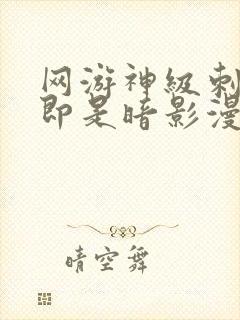 网游神级刺
即是暗影漫
晴空舞